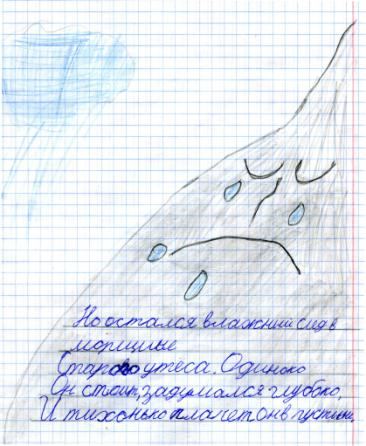 Но остался влажный след в
морщине
Старого утеса. Одиноко
Он стоит, задумался глубоко,
И тихонько плачет он в пустыне.